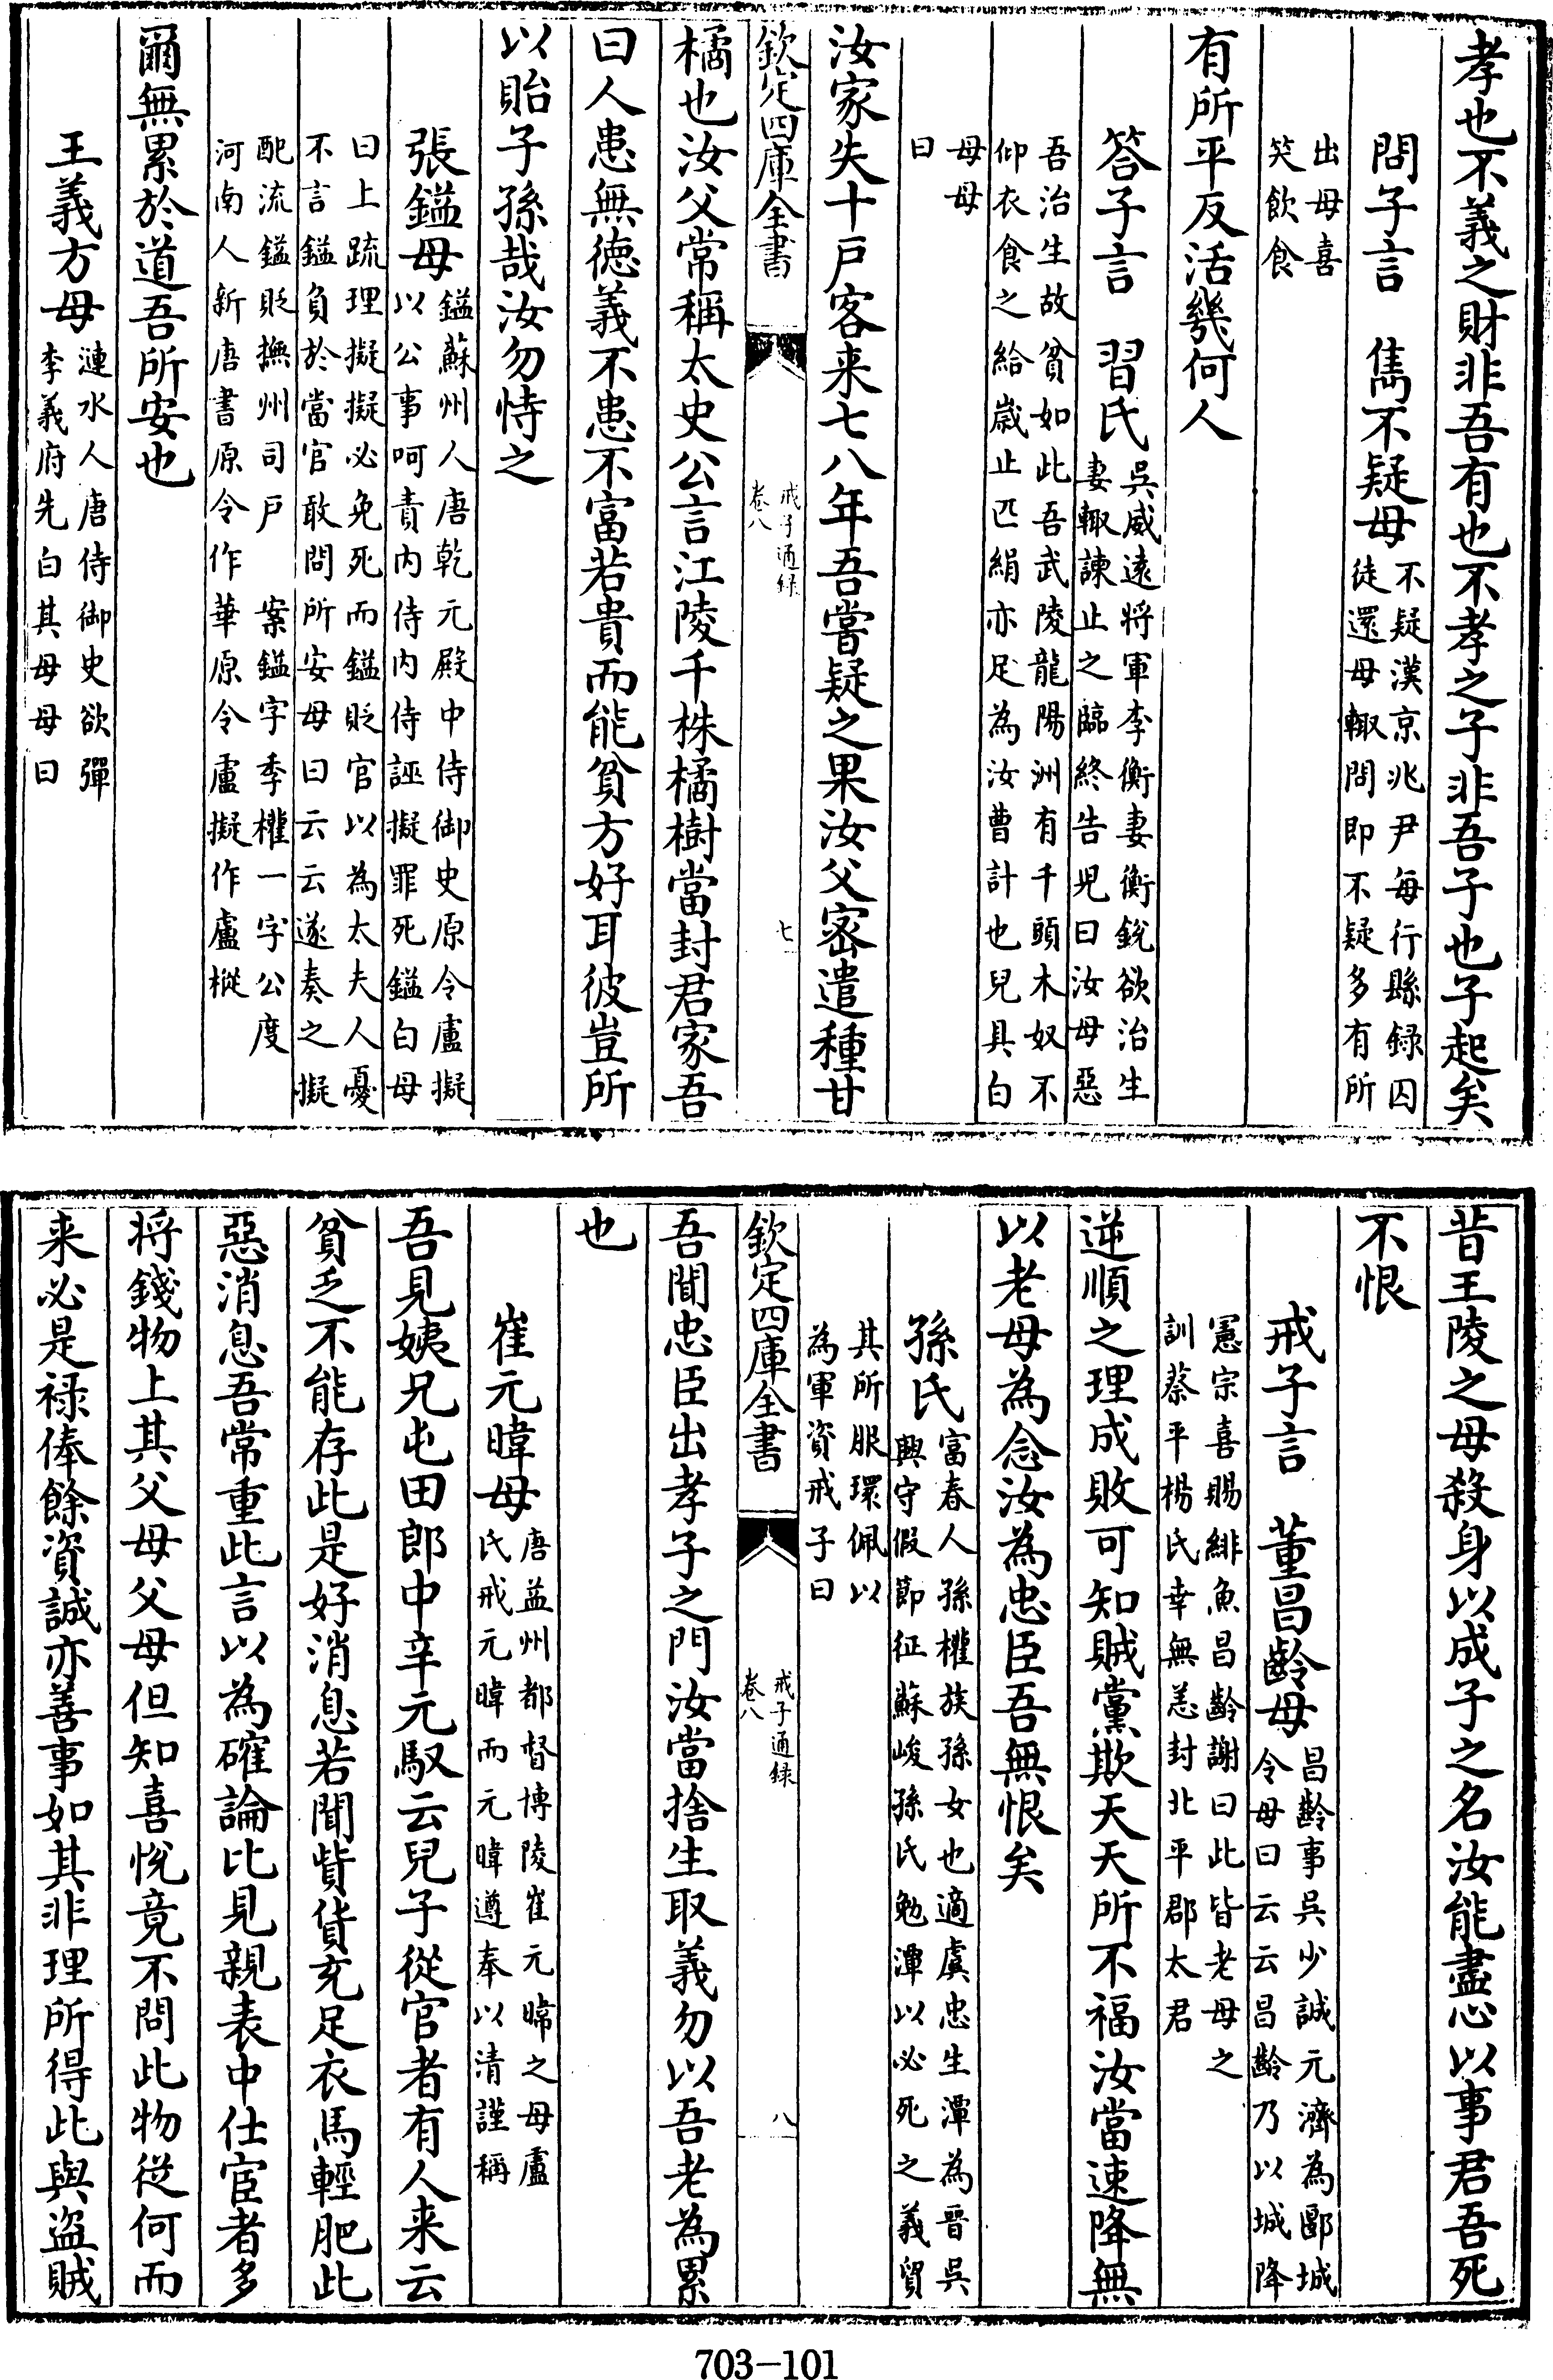 孝也不義之財非吾有也不孝之子非吾子也子起矣
問子言　雋不疑母不疑漢京兆尹每行縣録囚
徒還母輙問即不疑多有所
出母喜
笑飲食
有所平反活幾何人
答子言　習氏吳威遠將軍李衡妻衡銳欲治生
妻輙諫止之臨終告兒曰汝母惡
吾治生故貧如此吾武陵龍陽洲有千頭木奴不
仰衣食之給歲止匹絹亦足為汝曹計也兒具白
母母
曰
汝家失十戶客来七八年吾嘗疑之果汝父密遣種甘
欽定四庫全書
戒子通録
卷八
七
橘也汝父常稱太史公言江陵千株橘樹當封君家吾
曰人患無德義不患不富若貴而能貧方好耳彼豈所
以貽子孫哉汝勿恃之
張鎰母鎰蘇州人唐乾元殿中侍御史原令盧擬
以公事呵責内侍内侍誣擬罪死鎰白母
曰上疏理擬擬必免死而鎰貶官以為太夫人憂
不言鎰負於當官敢問所安母曰云云遂奏之擬
配流鎰貶撫州司戶　案鎰字季權一字公度
河南人新唐書原令作華原令盧擬作盧樅
爾無累於道吾所安也
王義方母漣水人唐侍御史欲彈
李義府先白其母母曰
昔王陵之母殺身以成子之名汝能盡心以事君吾死
不恨
戒子言　董昌齡母昌齡事吳少誠元濟為郾城
令母曰云云昌齡乃以城降
憲宗喜賜緋魚昌齡謝曰此皆老母之
訓蔡平楊氏幸無恙封北平郡太君
逆順之理成敗可知賊黨欺天天所不福汝當速降無
以老母為念汝為忠臣吾無恨矣
孫氏富春人孫權族孫女也適虞忠生潭為晉吳
興守假節征蘇峻孫氏勉潭以必死之義貿
其所服環佩以
為軍資戒子曰
欽定四庫全書
戒子通録
卷八
八
吾聞忠臣出孝子之門汝當捨生取義勿以吾老為累
也
崔元暐母唐益州都督博陵崔元暐之母盧
氏戒元暐而元暐遵奉以清謹稱
吾見姨兄屯田郎中辛元馭云兒子從官者有人来云
貧乏不能存此是好消息若聞貲貨充足衣馬輕肥此
惡消息吾常重此言以為確論比見親表中仕宦者多
將錢物上其父母父母但知喜悅竟不問此物從何而
来必是祿俸餘資誠亦善事如其非理所得此與盜賊
703-101